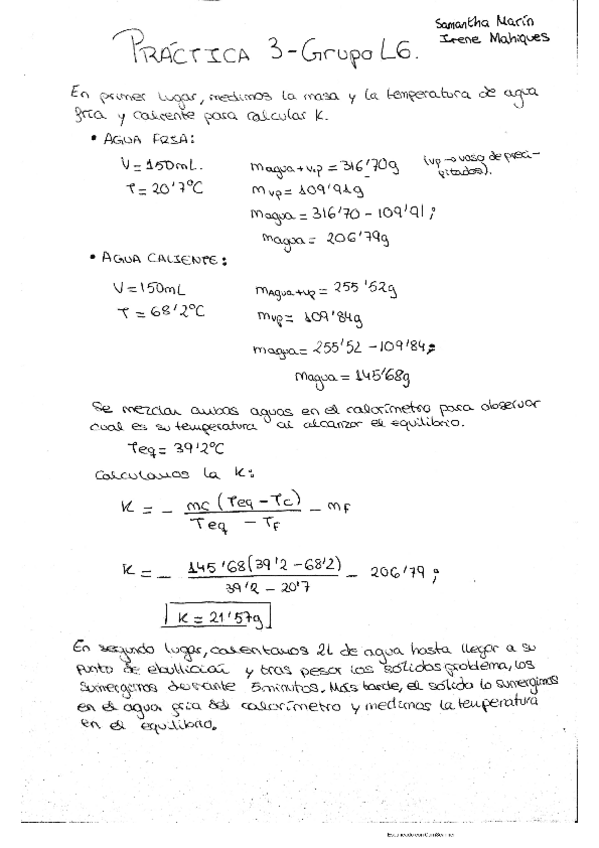 Samantha Marín
Irene Mahiques
PRÁCTICA 3-Grupo L6.
En primer lugar, medimos la masa y la temperatura de agua
fría y caliente para calcular K.
• AGUA FRÍA:
V = 150mL.
T = 20'7ºC
magua+vp = 316'70g
(vp → vaso de preci-
pitados).
mvp = 109'91g
magua = 316'70 - 109'91;
magua = 206'79g
• AGUA CALIENTE:
V = 150mL
T = 68'2ºC
mAgua+vp = 255'52g
mvp = 109'84g
magua = 255'52 - 109'84;
magua = 145'68g
Se mezclan ambas aguas en el calorímetro para observar
cual es su temperatura al alcanzar el equilibrio.
Teq = 39'2ºC
Calculamos la K:
K = - mc (Teq - Tc) / Teq - TF - mF
K = - 145'68 (39'2 - 68'2) / 39'2 - 20'7 - 206'79;
K = 21'57g
En segundo lugar, calentamos 2L de agua hasta llegar a su
punto de ebullición y tras pesar los sólidos problema, los
sumergimos durante 5 minutos. Más tarde, el sólido lo sumergimos
en el agua fría del calorímetro y medimos la temperatura
en el equilibrio.
Escaneado con CamScanner